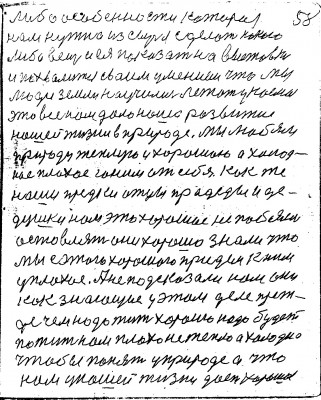 либо особенности которая 58
нам нужна из сырья сделать какую
либо вещь и ея показать на выставки
и похвалится своим умением что мы
люди земли научились летать у космос
это всё нам дало наше развитие
нашей жизни в природе. Мы любим
природу теплую и хорошую а холод-
ное плохое гоним от себя. Как же
наши предки отцы прадеды и де-
душки нам это хорошее не побоялись
оставлять они хорошо знали что
мы с этого хорошого придем к ним
у плохое. А не подсказали нам они
как знающие у этом деле преж-
де чем надо жить хорошо надо будет
пожить нам плохо не тепло а холодно
чтобы понять у природе а что
нам у нашей жизни дает хорошее